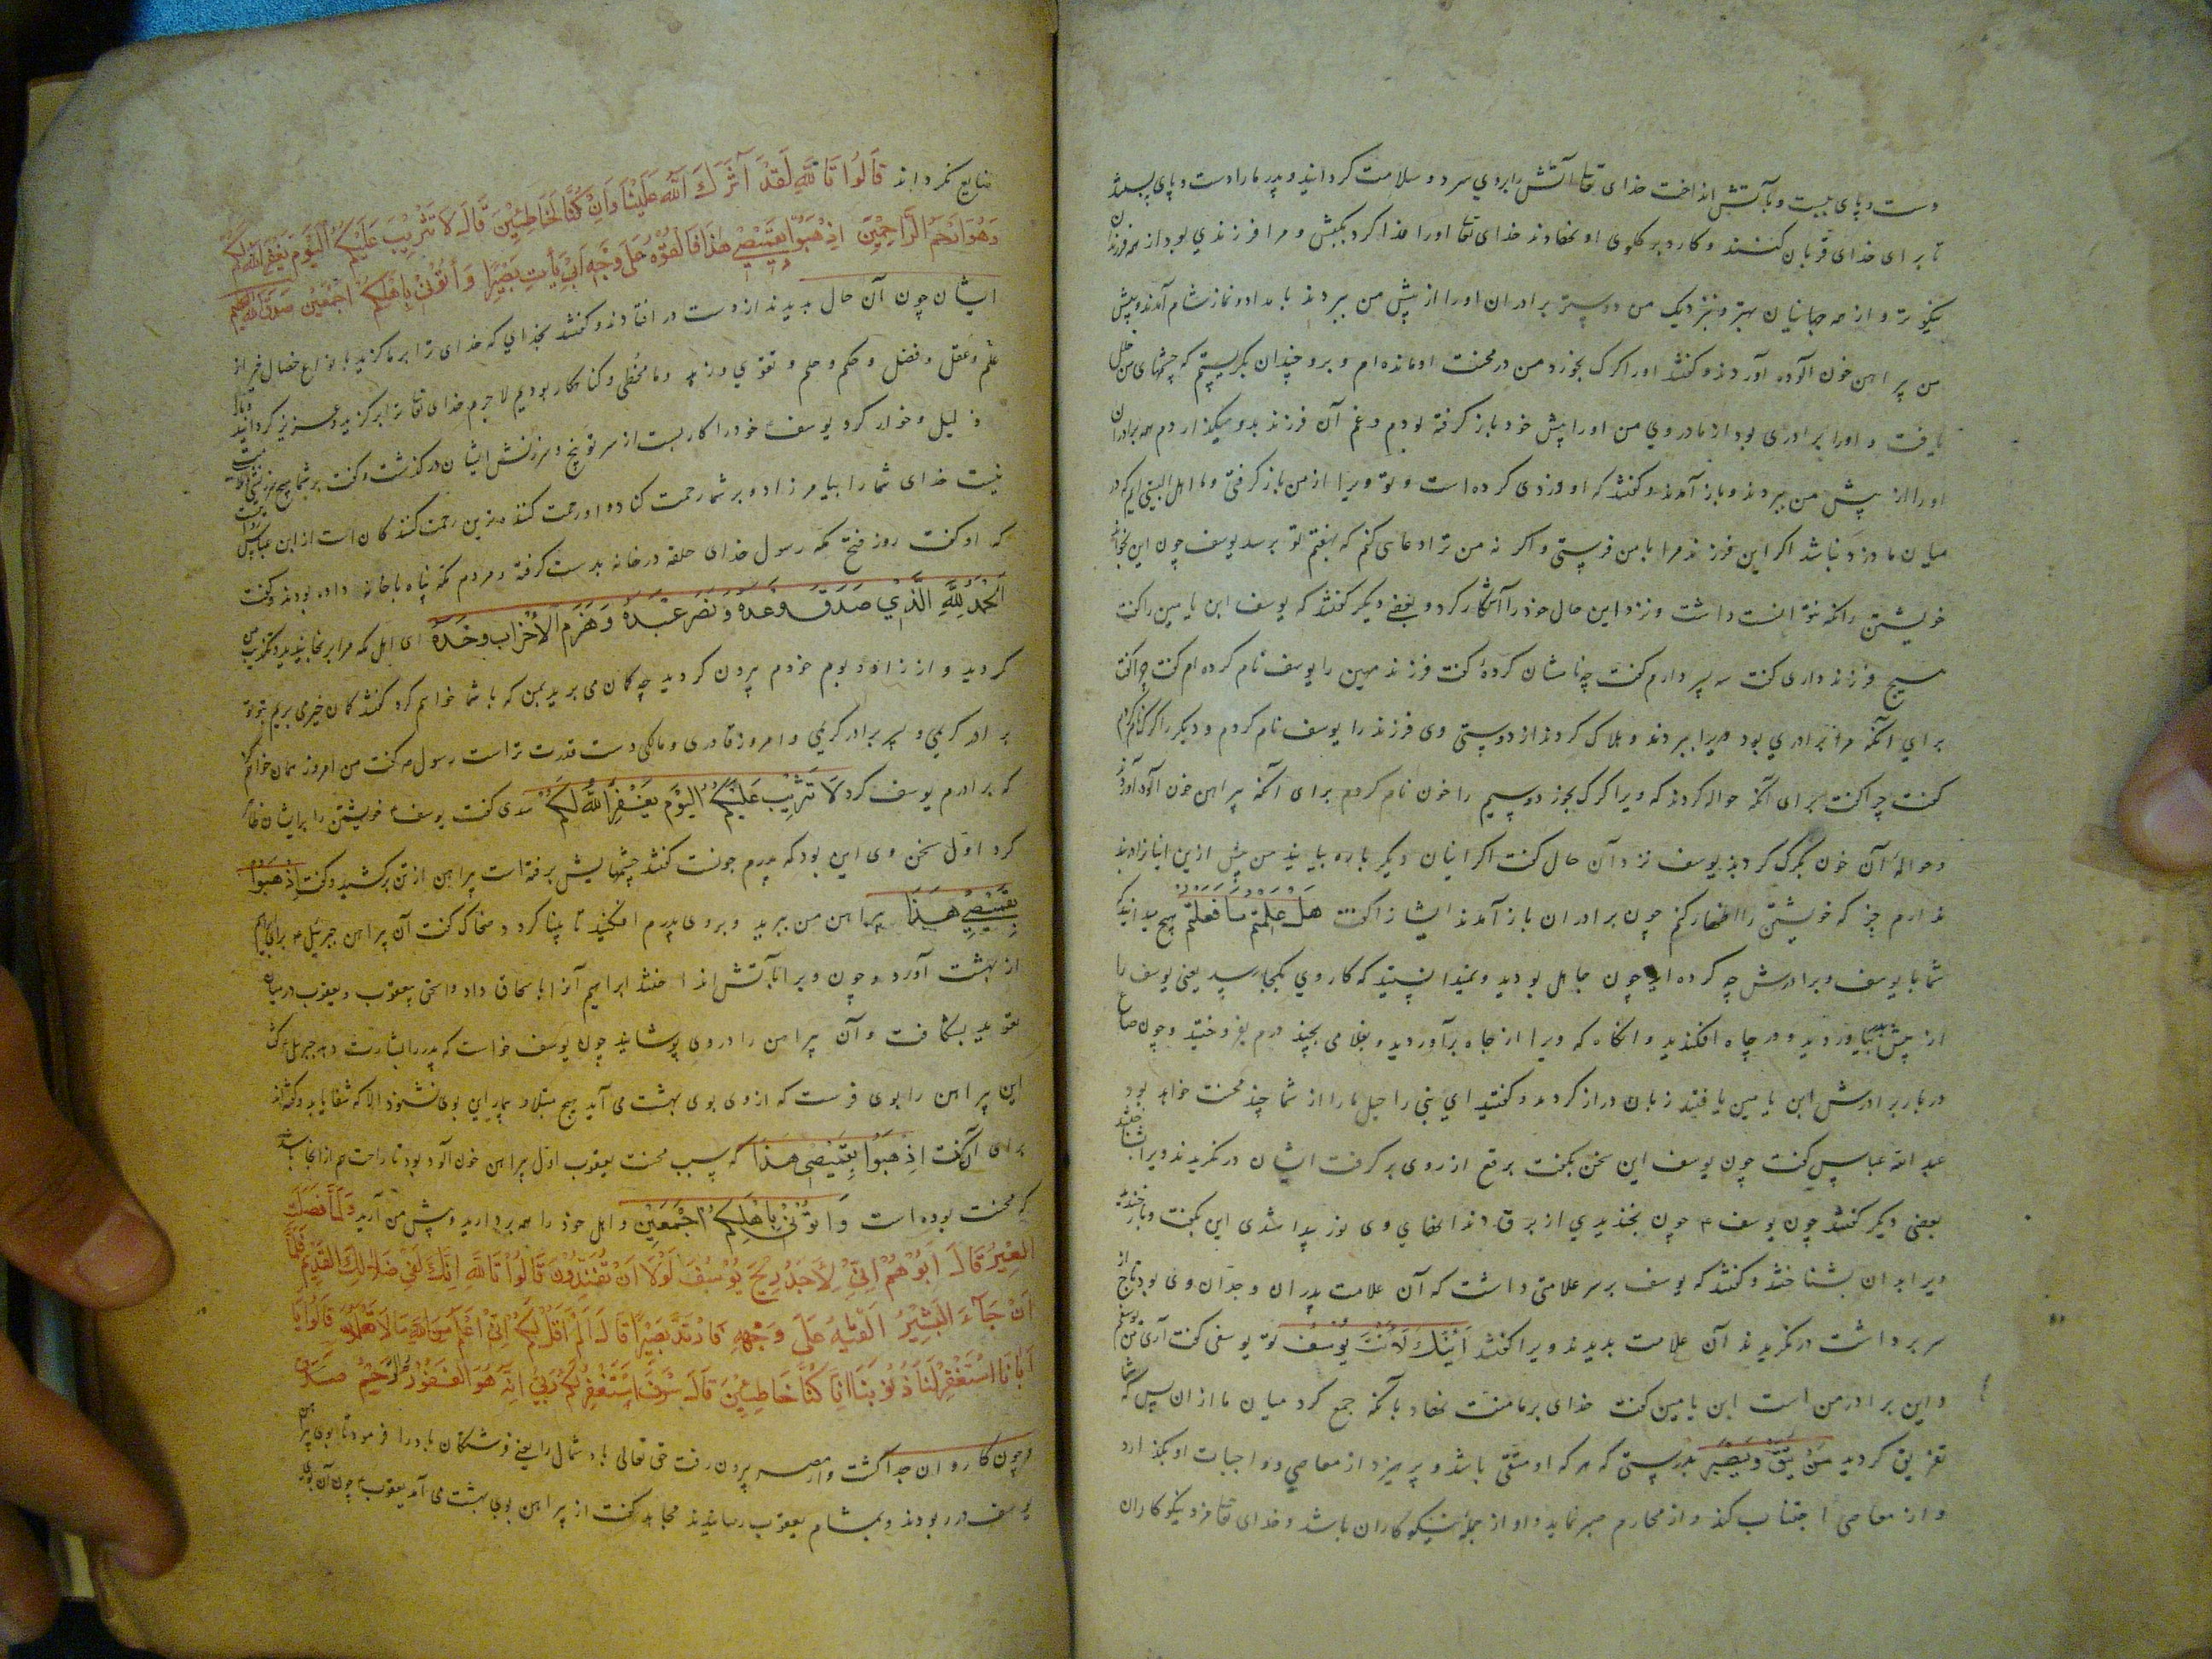 دست و پای ببست و بآتش انداخت خدای تعا آتش را بروی سرد و سلامت کردانید و پدر ما را دست و پای ببستند
تا برای خدای قربان کنند و کارد بر کلوی او نهادند خدای تعا او را فدا کرد بکبش و مرا فرزندی بود از همه فرزندان
نیکوتر و از همه جهانیان بهتر و بنزدیک من دوستر برادران او را از پیش من ببردند بامداد و نماز شام آمدند و پیش
من پیراهن خون آلوده آوردند و کفتند او را کرک بخورد و من در محنت او مانده ام و برو چندان بکریستم که چشمهای من خلل
یافت و او را برادری بود از مادر وی من او را پیش خود باز کرفته بودم و غم آن فرزند بدو میکذاردم همه برادران
او را از پیش من ببردند و باز آمدند و کفتند که او دزدی کرده است و تو ویرا از من باز کرفتی و ما اهل البیتی ایم که در
میان ما دزد نباشد اکر این فرزند مرا با من فرستی و اکر نه من ترا دعای کنم که بهفتم تو برسد یوسف چون این بخواند
خویشتن را نکه نتوانست داشت و نزد این حال خود را آشکار کرد و بعضی دیکر کفتند که یوسف ابن یامین را کفت
هیچ فرزند داری کفت سه پسر دارم کفت چه نامشان کردهٔ کفت فرزند مهین را یوسف نام کرده ام کفت چرا کفت
برای آنکه مرا برادری بود ویرا ببردند و هلاک کردند از دوستی وی فرزند را یوسف نام کردم و دیکر را کرک نام کردم
کفت چرا کفت برای آنکه حواله کردند که ویرا کرک بخورد و سیم را خون نام کردم برای آنکه پیراهن خون آلود آوردند
و حوالهٔ آن خون بکرک کردند یوسف نزد آن حال کفت اکر اینان دیکر باره بیایند من بیش ازین
ندارم جز که خویشتن را اظهار کنم چون برادران باز آمدند ایشانرا کفت هَلْ عَلِمْتُمْ مَا فَعَلْتُمْ هیچ میدانید که
شما با یوسف و برادرش چه کرده اید چون جاهل بودید و نمیدانستید که کار وی بکجا رسد یعنی یوسف را
از پیش پدر بیاوردید و در چاه افکندید و انکاه که ویرا از چاه برآوردید و بغلامی بچند درم بفروختید و چون صاع
در بار برادرش ابن یامین یافتید زبان دراز کردید و کفتید ای بنی راحیل ما را از شما چند محنت خواهد بود
عبد الله عباس کفت چون یوسف این سخن بکفت برقع از روی برکرفت ایشان درنکریدند ویرا بشناختند
بعضی دیکر کفتند چون یوسف چون بخندیدی از برق دندانهای وی نور پیدا شدی این بکفت و بخندید
ویرا بدان بشناختند و کفتند که یوسف بر سر علامتی داشت که آن علامت پدران و جدان وی بود تاج از
سر برداشت درنکریدند آن علامت بدیدند ویرا کفتند اَئِنَّكَ لَاَنْتَ يُوسُفُ تو یوسفی کفت آری من یوسفم
و این برادر من است ابن یامین کفت خدای بر ما منت نهاد بآنکه جمع کرد میان ما از ان پس که شما
تفریق کردید مَنْ يَتَّقِ وَيَصْبِرْ بدرستی که هر که او متقی باشد و پرهیزد از معاصی و واجبات او بکذارد
و از معاصی اجتناب کند و از محارم صبر نماید و او از جملهٔ نیکوکاران باشد و خدای تعا مزد نیکوکاران
ضایع نکرداند قَالُوا تَاللّٰهِ لَقَدْ آثَرَكَ اللّٰهُ عَلَيْنَا وَاِنْ كُنَّا لَخَاطِئِينَ قَالَ لَا تَثْرِيبَ عَلَيْكُمُ الْيَوْمَ يَغْفِرُ اللّٰهُ لَكُمْ
وَهُوَ اَرْحَمُ الرَّاحِمِينَ اِذْهَبُوا بِقَمِيصِي هٰذَا فَاَلْقُوهُ عَلٰى وَجْهِ اَبِي يَأْتِ بَصِيرًا وَأْتُونِي بِاَهْلِكُمْ اَجْمَعِينَ صدق الله العظیم
ایشان چون آن حال بدیدند از دست در افتادند و کفتند بخدای که خدای ترا بر ما کزید بانواع خصال خیر از
علم و عقل و فضل و حکم و حلم و تقوی و ما مخطی و کناهکار بودیم لاجرم خدای تعا ترا برکزید و عزیز کردانید و ما را
ذلیل و خوار کرد یوسف خود را کار بست از سر توبیخ و سرزنش ایشان در کذشت و کفت بر شما هیچ سرزنشی و ملامت
نیست خدای شما را بیامرزاد و بر شما رحمت کناد و او رحمت کننده ترین رحمت کنندکان است از ابن عباس روایت
که او کفت روز فتح مکه رسول خدای حلقه در خانه بدست کرفته و مردم مکه پناه با خانه داده بودند و کفت
اَلْحَمْدُ لِلّٰهِ الَّذِي صَدَقَ وَعْدَهُ وَنَصَرَ عَبْدَهُ وَهَزَمَ الْاَحْزَابَ وَحْدَهُ ای اهل مکه مرا برنجانیدید و تکذیب من
کردید و از زاد و بوم خودم بیرون کردید چه کمان می برید بمن که با شما خواهم کرد کفتند کمان خیر می بریم بتو تو
برادر کریمی و پسر برادر کریمی و امروز قادری و مالکی دست قدرت تراست رسول کفت من امروز همان خواهم کرد
که برادرم یوسف کرد لَا تَثْرِيبَ عَلَيْكُمُ الْيَوْمَ يَغْفِرُ اللّٰهُ لَكُمْ سدی کفت یوسف خویشتن را بر ایشان ظاهر
کرد اول سخن وی این بود که پدرم چونست کفتند چشمهایش برفته است پیراهن از تن برکشید و کفت اِذْهَبُوا
بِقَمِيصِي هٰذَا پیراهن من ببرید و بروی پدرم افکنید تا بینا کردد ضحاک کفت آن پیراهن جبرئیل برای ابراهیم
از بهشت آورد و چون ویرا بآتش انداختند ابراهیم آنرا باسحاق داد و اسحق بیعقوب و یعقوب در میان
تعویذ بشکافت و آن پیراهن را در وی پوشانید چون یوسف خواست که پدر را بشارت دهد جبریل کفت
این پیراهن را بوی فرست که ازوی بوی بهشت می آید هیچ مبتلا و بیمار این بوی نشنود الا که شفا یابد و کفته اند
برای آن کفت اِذْهَبُوا بِقَمِيصِي هٰذَا که سبب محنت یعقوب اول پیراهن خون آلود بود تا راحت هم از انجا باشد
که محنت بوده است وَاْتُونِي بِاَهْلِكُمْ اَجْمَعِينَ و اهل خود را همه بردارید و پیش من آرید وَلَمَّا فَصَلَتِ
الْعِيرُ قَالَ اَبُوهُمْ اِنِّي لَاَجِدُ رِيحَ يُوسُفَ لَوْلَا اَنْ تُفَنِّدُونِ قَالُوا تَاللّٰهِ اِنَّكَ لَفِي ضَلَالِكَ الْقَدِيمِ فَلَمَّا
اَنْ جَآءَ الْبَشِيرُ اَلْقٰيهُ عَلٰى وَجْهِهِ فَارْتَدَّ بَصِيرًا قَالَ اَلَمْ اَقُلْ لَكُمْ اِنِّي اَعْلَمُ مِنَ اللّٰهِ مَا لَا تَعْلَمُونَ قَالُوا يَا
اَبَانَا اسْتَغْفِرْ لَنَا ذُنُوبَنَا اِنَّا كُنَّا خَاطِئِينَ قَالَ سَوْفَ اَسْتَغْفِرُ لَكُمْ رَبِّي اِنَّهُ هُوَ الْغَفُورُ الرَّحِيمُ
و چون کاروان جدا کشت و از مصر بیرون رفت حق تعالی باد شمال را یعنی فرشتکان باد را فرمود تا بوی پیراهن
یوسف در ربودند و بمشام یعقوب رسانیدند مجاهد کفت از پیراهن بوی بهشت می آمد یعقوب چون آن بوی